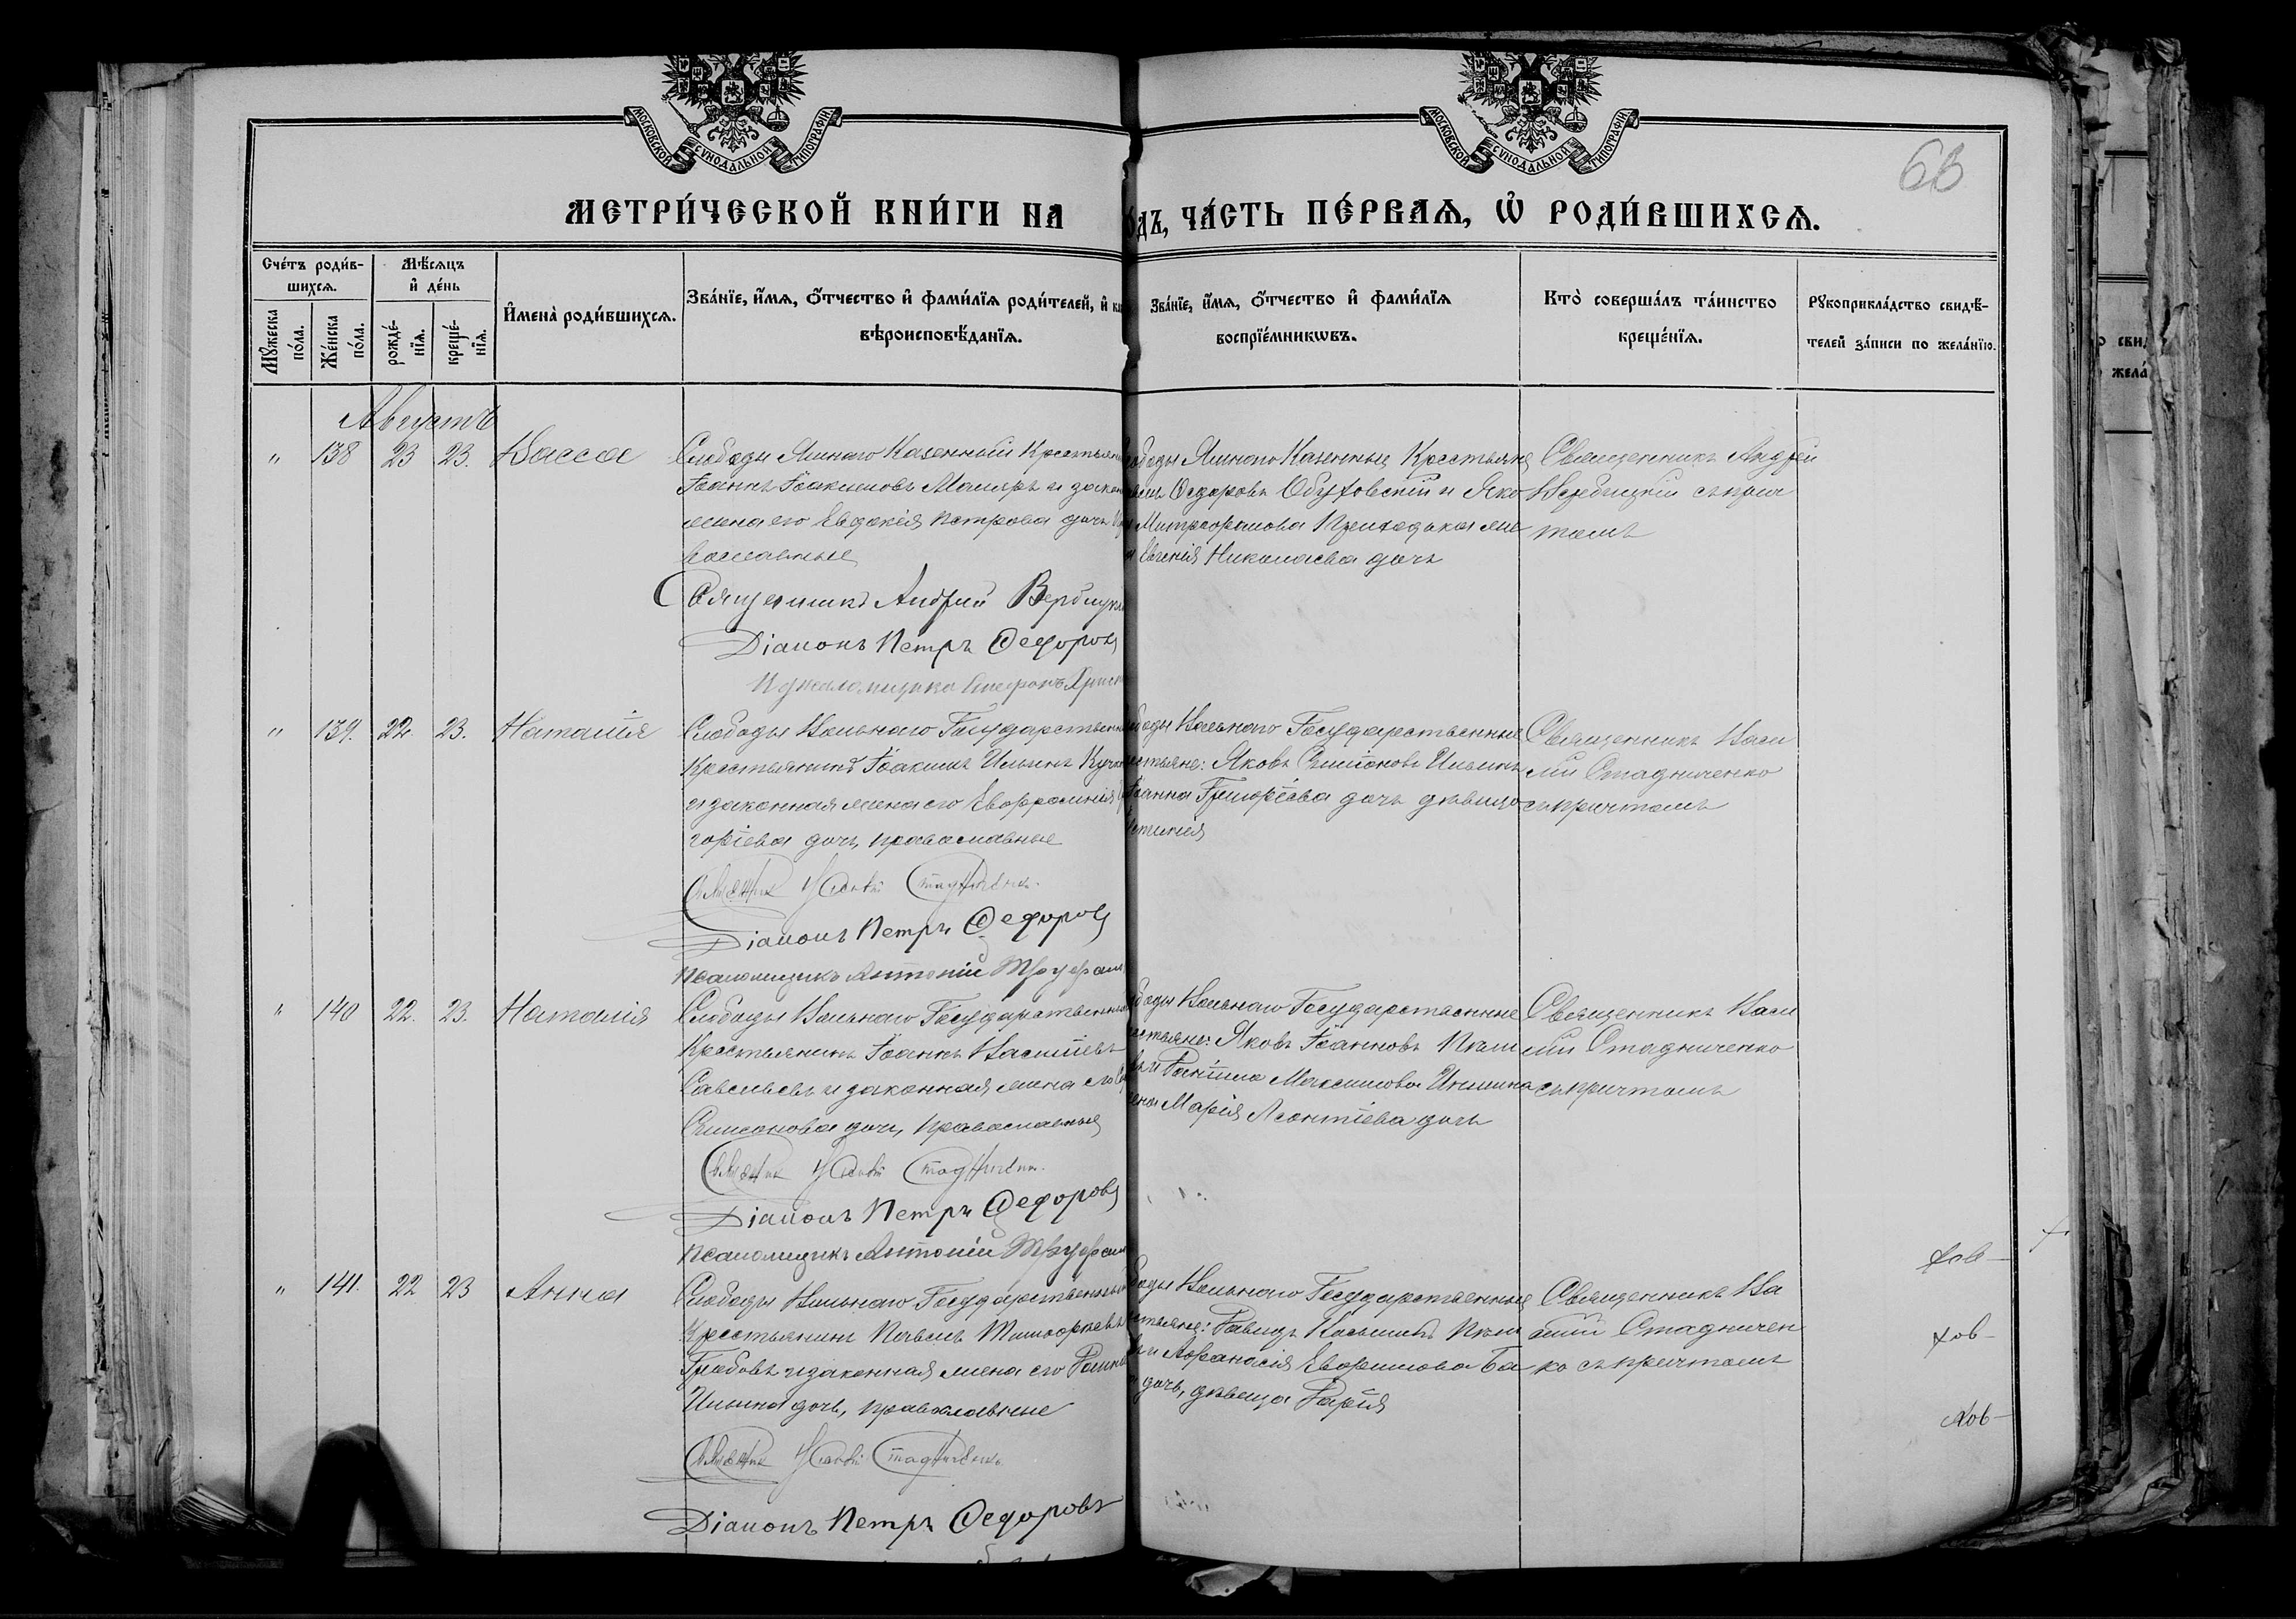 МОСКОВСКОЙ СѴНОДАЛЬНОЙ ТИПОГРАФІИ
МОСКОВСКОЙ СѴНОДАЛЬНОЙ ТИПОГРАФІИ
63
МЕТРИ́ЧЕСКОЙ КНИ́ГИ НА
О́ДЪ, ЧА́СТЬ ПЕ́РВАѦ, Ѡ҆ РОДИ́ВШИХСѦ.
Сче́тъ роди́в-
шихсѧ.
Мꙋ́жеска по́ла.
Же́нска по́ла.
Мѣ́сѧцъ
и҆ де́нь
рожде́-
нїѧ.
креще́-
нїѧ.
И҆мена̀ роди́вшихсѧ.
Зва́нїе, и҆́мѧ, ѻ҆́тчество и҆ фами́лїѧ роди́телей, и҆
вѣроисповѣ́данїѧ.
Зва́нїе, и҆́мѧ, ѻ҆́тчество и҆ фами́лїѧ
воспрїе́мникѡвъ.
Кто̀ соверша́лъ та́инство
креще́нїѧ.
Рꙋкоприкла́дство свидѣ́-
телей за́писи по жела́нїю.
Августъ
" 138 23 23. Васса
Слободы Ямнаго Казенный Крестьянин
Іоаннъ Іоакимовъ Маляръ и закон
жена его Евдокія Петрова дочь
вославные
Священникъ Андрей Вербицк
Діаконъ Петръ Ѳедоровъ
Псаломщикъ Стефанъ
ободы Ямнаго Казенные Крестьяне
Ѳедоровъ Обуховскій и Яко
Митрофанова Приходька же
Евгенія Николаева дочь
Священникъ Андрей
Вербицкій съ прич
томъ
" 139. 22 23. Наталія
Слободы Вольнаго Государственный
Крестьянинъ Іоакимъ Ильинъ
и законная жена его Евфросинія
горіева дочь, православные
Василій Стадниченко.
Діаконъ Петръ Ѳедоровъ
Псаломщикъ Антоній Труфан
боды Вольнаго Государственные
естьяне: Яковъ Симоновъ Ильинъ
Іоанна Григоріева дочь дѣвица
Священникъ Васи
лій Стадниченко
съ причтомъ
" 140 22. 23. Наталія
Слободы Вольнаго Государственный
Крестьянинъ Іоаннъ Василіевъ
Савельевъ и законная жена его
Симеонова дочь, православные
Василій Стадниченко.
Діаконъ Петръ Ѳедоровъ
Псаломщикъ Антоній Труфан
боды Вольнаго Государственные
естьяне: Яковъ Іоанновъ
и Даніила Максимова Иншина
Марія Леонтіева дочь
Священникъ Васи
лій Стадниченко
съ причтомъ
" 141. 22 23 Анна
Слободы Вольнаго Государственный
Крестьянинъ Павелъ Тимофеевъ
Грибовъ и законная жена его
Ильина дочь, православные
Василій Стадниченко
Діаконъ Петръ Ѳедоровъ
боды Вольнаго Государственные
естьяне: Давидъ
и Афанасія Ефимова Ба
дочь, дѣвица Дарія
Священникъ Ва
силій Стадничен
ко съ причтомъ